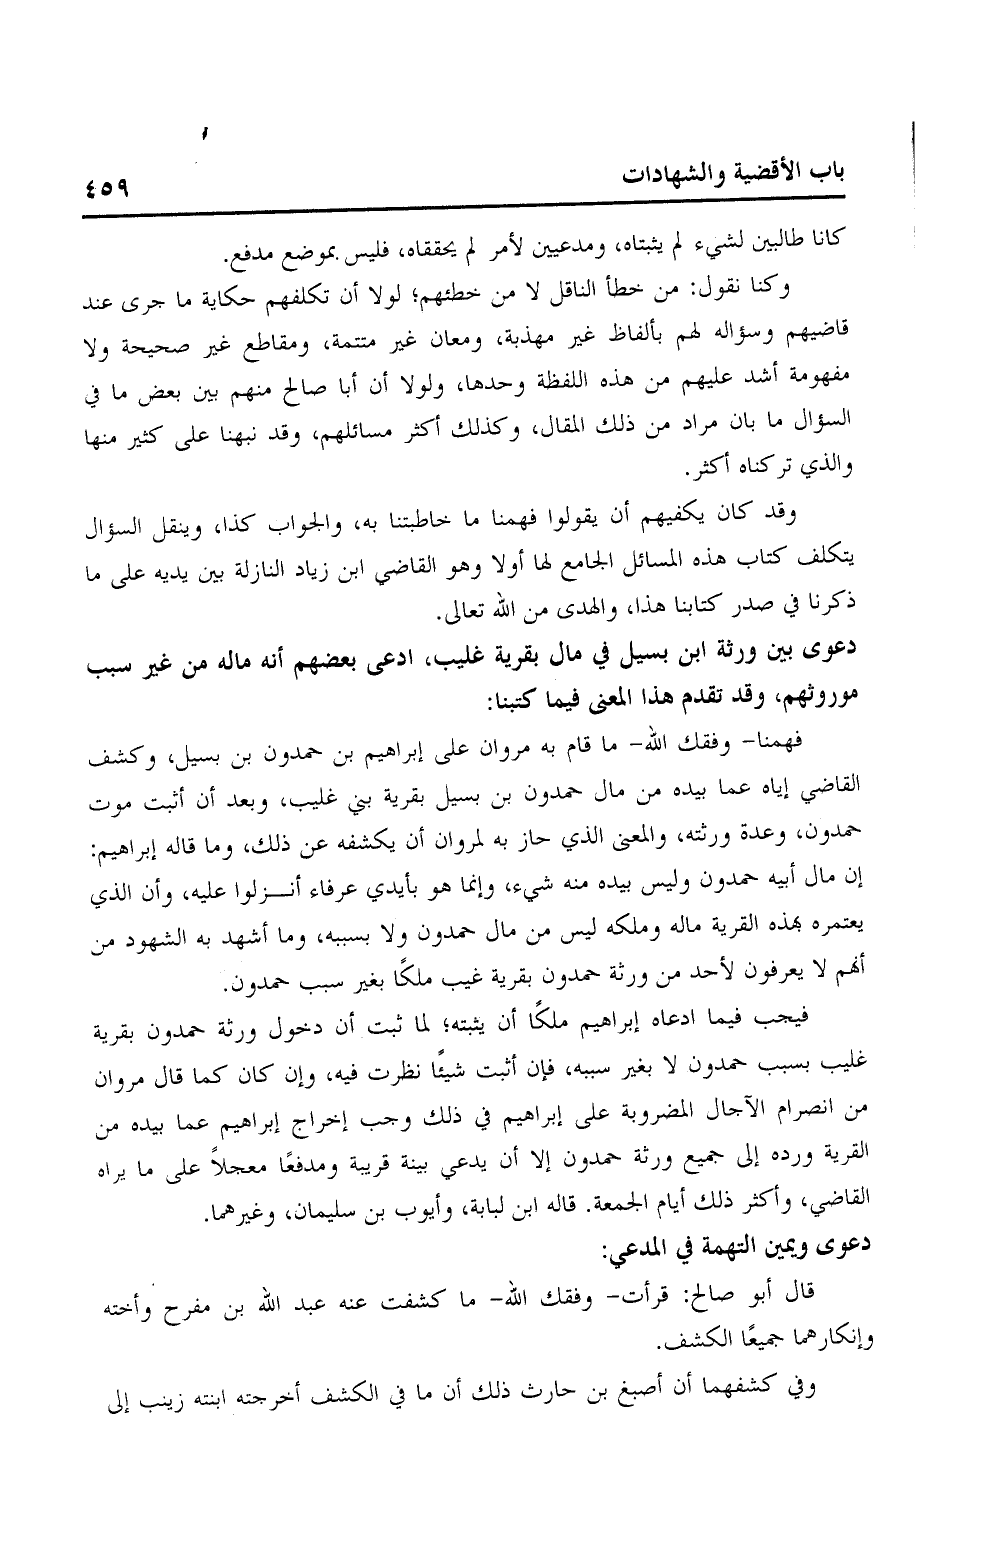 باب الأقضية والشهادات ٤٥٩
كانا طالبين لشيء لم يثبتاه، ومدعيين لأمر لم يحققاه، فليس بموضع مدفع.
وكنا نقول: من خطأ الناقل لا من خطئهم؛ لولا أن تكلفهم حكاية ما جرى عند
قاضيهم وسؤاله لهم بألفاظ غير مهذبة، ومعان غير متتمة، ومقاطع غير صحيحة ولا
مفهومة أشد عليهم من هذه اللفظة وحدها، ولولا أن أبا صالح منهم بين بعض ما في
السؤال ما بان مراد من ذلك المقال، وكذلك أكثر مسائلهم، وقد نبهنا على كثير منها
والذي تركناه أكثر.
وقد كان يكفيهم أن يقولوا فهمنا ما خاطبتنا به، والجواب كذا، وينقل السؤال
يتكلف كتاب هذه المسائل الجامع لها أولا وهو القاضي ابن زياد النازلة بين يديه على ما
ذكرنا في صدر كتابنا هذا، والهدى من الله تعالى.
دعوى بين ورثة ابن بسيل في مال بقرية غليب، ادعى بعضهم أنه ماله من غير سبب
موروثهم، وقد تقدم هذا المعنى فيما كتبنا:
فهمنا- وفقك الله- ما قام به مروان على إبراهيم بن حمدون بن بسيل، وكشف
القاضي إياه عما بيده من مال حمدون بن بسيل بقرية بني غليب، وبعد أن أثبت موت
حمدون، وعدة ورثته، والمعنى الذي حاز به لمروان أن يكشفه عن ذلك، وما قاله إبراهيم:
إن مال أبيه حمدون وليس بيده منه شيء، وإنما هو بأيدي عرفاء أنـزلوا عليه، وأن الذي
يعتمره بهذه القرية ماله وملكه ليس من مال حمدون ولا بسببه، وما أشهد به الشهود من
أنهم لا يعرفون لأحد من ورثة حمدون بقرية غيب ملكًا بغير سبب حمدون.
فيجب فيما ادعاه إبراهيم ملكًا أن يثبته؛ لما ثبت أن دخول ورثة حمدون بقرية
غليب بسبب حمدون لا بغير سببه، فإن أثبت شيئًا نظرت فيه، وإن كان كما قال مروان
من انصرام الآجال المضروبة على إبراهيم في ذلك وجب إخراج إبراهيم عما بيده من
القرية ورده إلى جميع ورثة حمدون إلا أن يدعي بينة قريبة ومدفعًا معجلاً على ما يراه
القاضي، وأكثر ذلك أيام الجمعة. قاله ابن لبابة، وأيوب بن سليمان، وغيرهما.
دعوى ويمين التهمة في المدعي:
قال أبو صالح: قرأت- وفقك الله- ما كشفت عنه عبد الله بن مفرح وأخته
وإنكارهما جميعًا الكشف.
وفي كشفهما أن أصبغ بن حارث ذلك أن ما في الكشف أخرجته ابنته زينب إلى